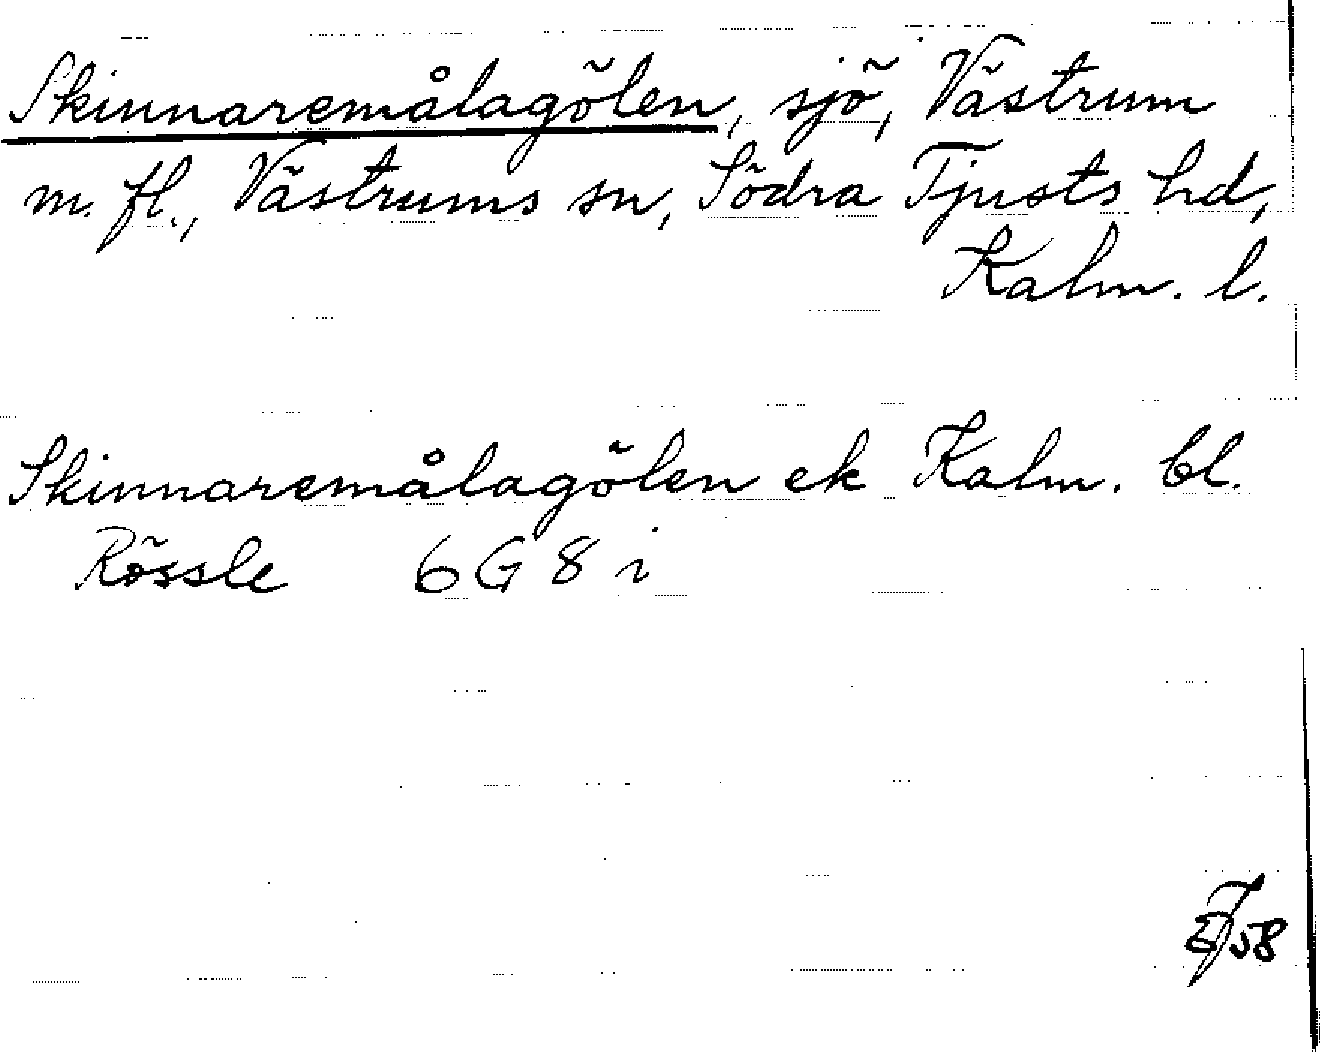 Skinnaremålagölen, sjö, Västrum
m. fl., Västrums sn, Södra Tjusts hd,
Kalm. l.
Skinnaremålagölen ek Kalm. bl.
Rössle 6G8i
58